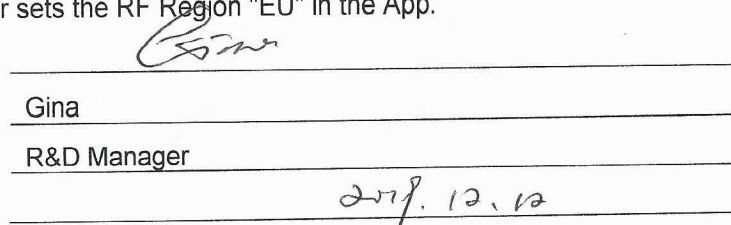 r sets the RF Region "EU" in the App.
Gina
Gina
R&D Manager
12.12